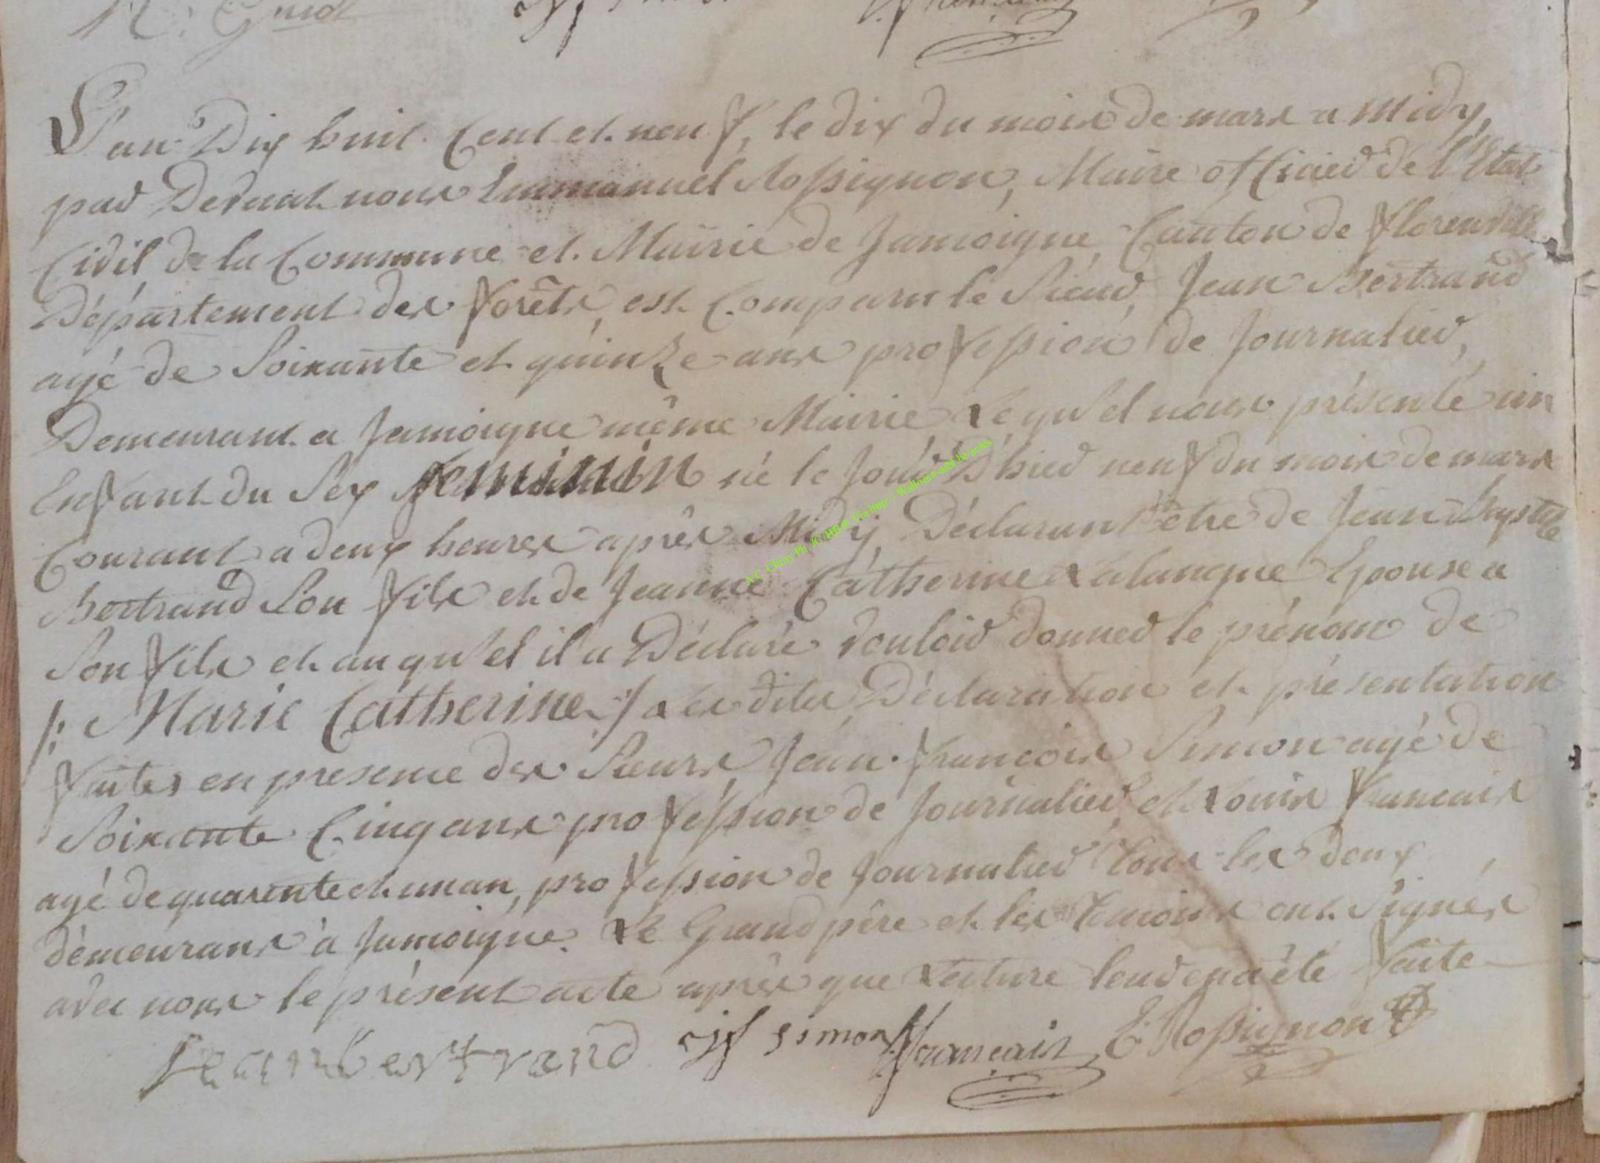 N: Guiot
L'an Dix huit Cent et neuf, le dix du mois de mars a Midy,
par Devant nous Emmanuel Rossignon, Maire officier de l'Etat
Civil de la Commune et Mairie de Jamoigne Canton de Florenville
Département des forêts, est Comparu le Sieur Jean Bertrand
agé de Soixante et quinze ans profession de Journalier,
Demeurant a Jamoigne même Mairie Lequel nous présenté un
Enfant du Sex feminin né le Jour D'hier neuf du mois de mars
Courant a deux heures après Midy, Déclarant être de Jean Baptiste
Bertrand Son fils et de Jeanne Catherine Lalangue Epouse a
Son fils et auquel il a Déclaré vouloir donner le prénom de
/: Marie Catherine :/ les dites Déclaration et présentation
faites en presence des Sieurs Jean François Simon agé de
Soixante Cinq ans profession de Journalier et Louis Francais
agé de quarente et un an, profession de Journalier tous les deux
démeurans à Jamoigne. Le Grand père et les temoins ont Signés
avec nous le présent acte après que Lecture leur en a été faite
Jean bertrand jf simon francais E. Rossignon